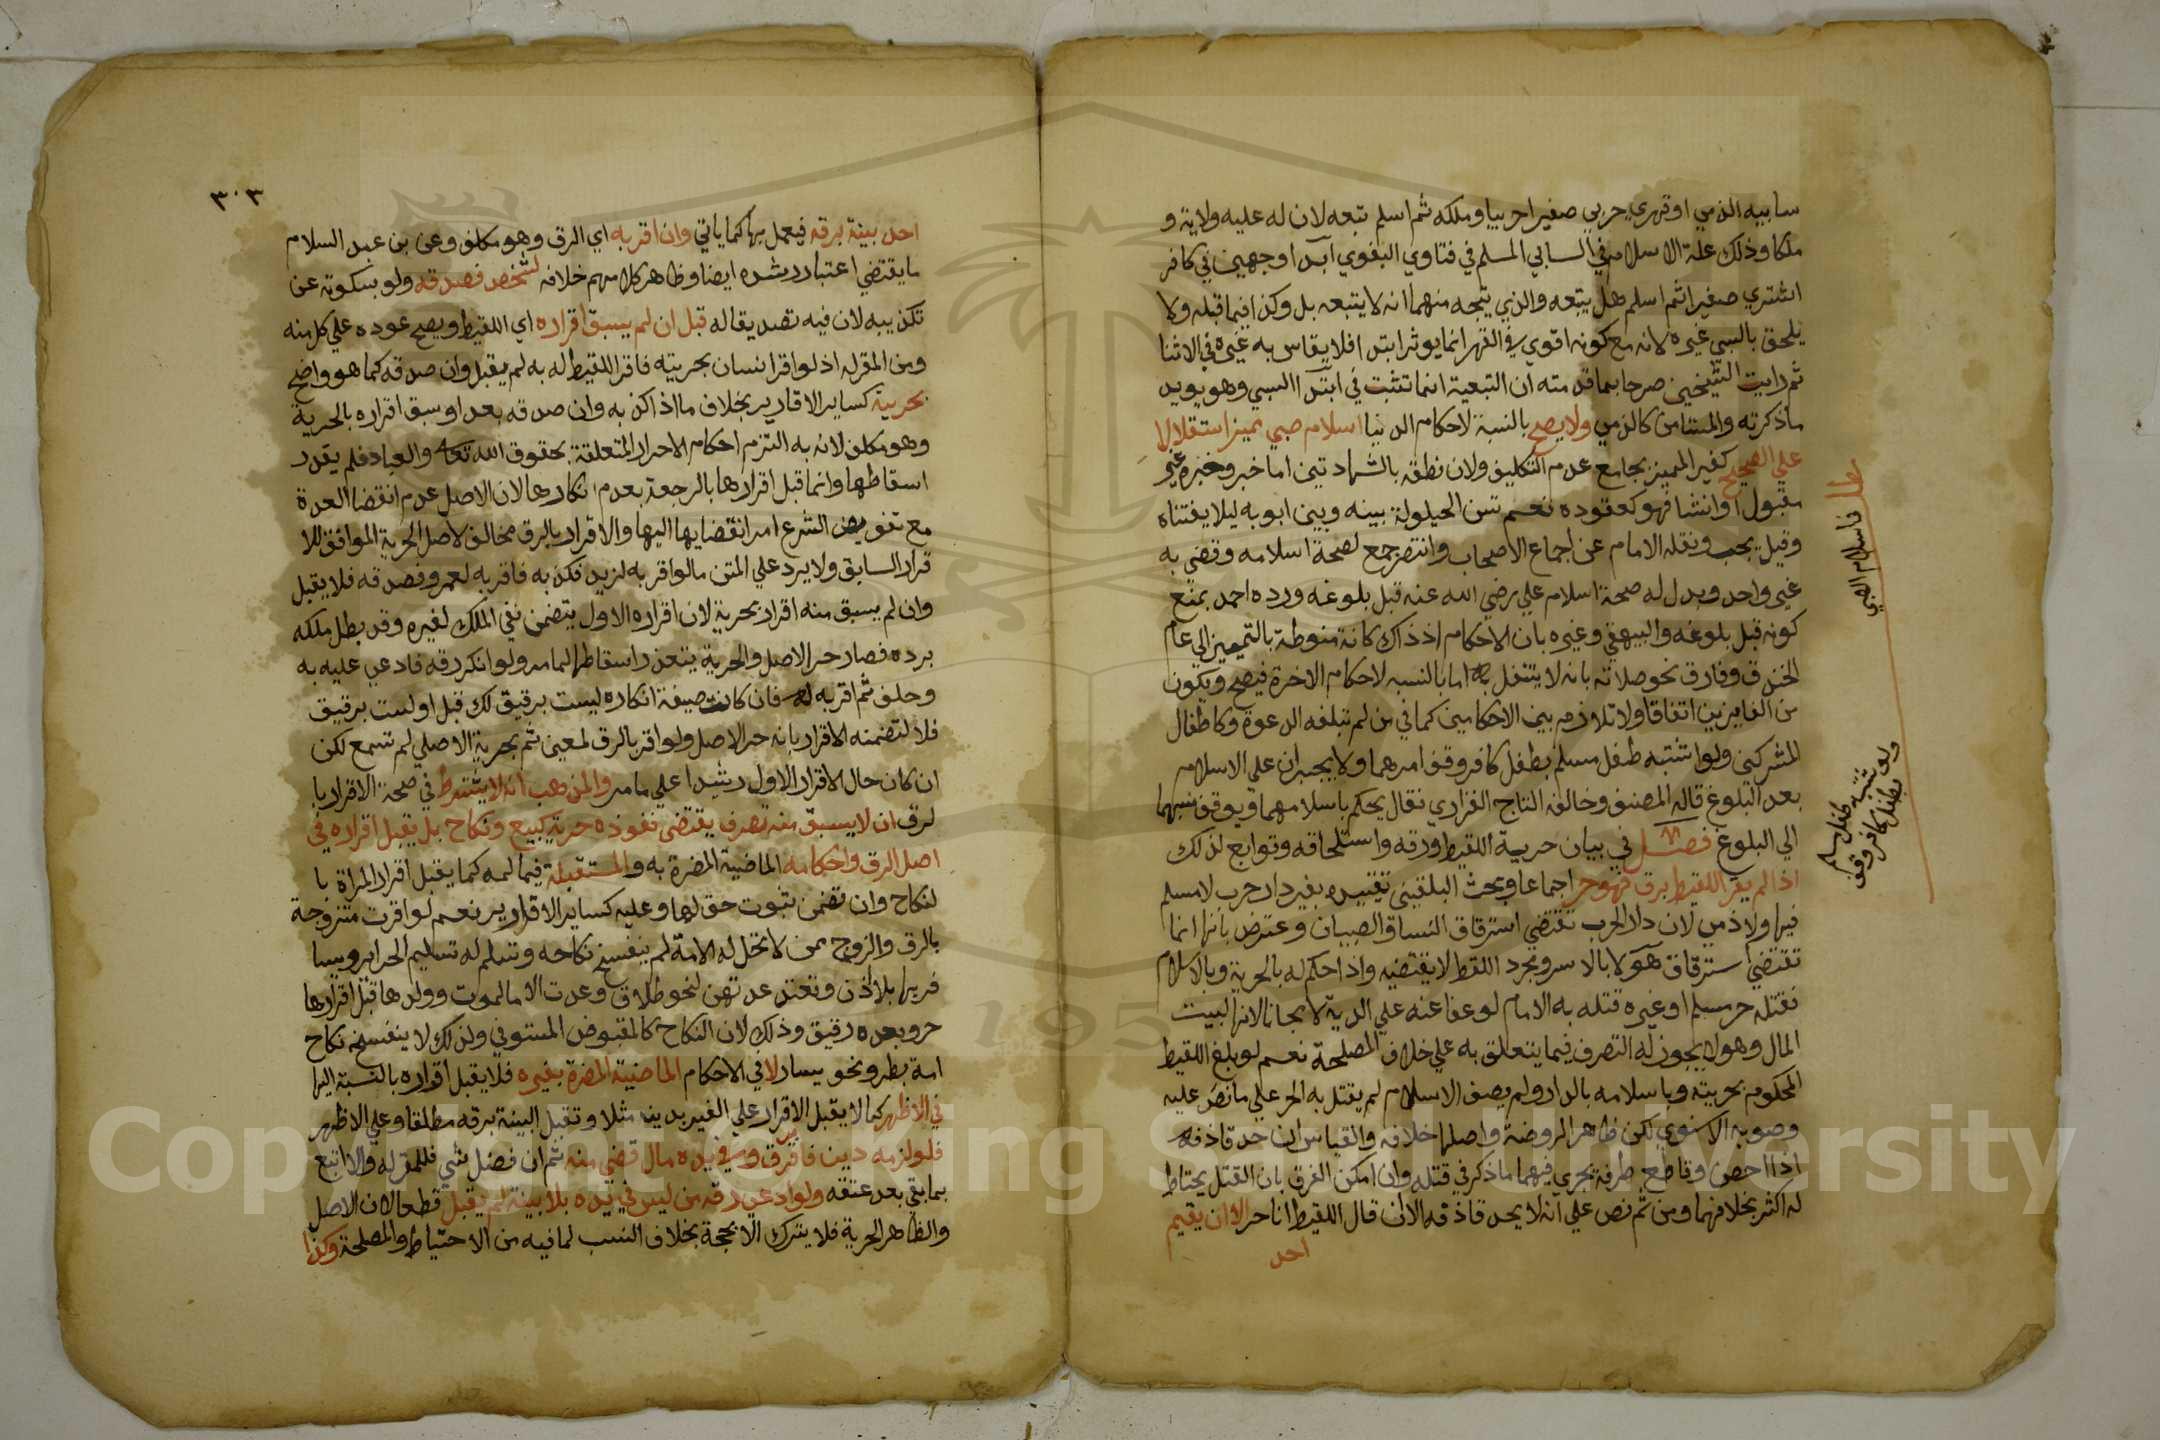 سابيه الذمي او قهري حربي صغيرا حربيا وملكه ثم اسلم تبعه لان له عليه ولاية و
ملكا وذلك علة الاسلام في السابي المسلم في فتاوي البغوي ابدا وجهين في كافر
اشتري صغيرا ثم اسلم هل يتبعه والذي يتجه منهما انه لا يتبعه بل وكذا فيما قبله ولا
يلحق بالسبي غيره لانه مع كونه اقوي في القهر انما يوثر ابتدا فلا يقاس به غيره في الاثنا
ثم رايت الشيخين صرحا بما قدمته ان التبعية انما تثبت في ابتدا السبي وهو يويد
ما ذكرته والمستامن كالذمي ولا يصح بالنسبة لاحكام الدنيا اسلام صبي مميز استقلالا
علي الصحيح كغير المميز بجامع عدم التكليف ولان نطقه بالشهادتين اما خبر وخبره غير
مقبول او انشا فهو كعقوده نعم تسن الحيلولة بينه وبين ابويه ليلا يفتناه
وقيل يجب ونقله الامام عن اجماع الاصحاب وانتصر جمع لصحة اسلامه وقضي به
غير واحد ويدل له صحة اسلام علي رضي الله عنه قبل بلوغه ورده احمد بمنع
كونه قبل بلوغه والبيهقي وغيره بان الاحكام اذ ذاك كانة منوطة بالتمييز الي عام
الخندق وفارق نحو صلاته بانه لا يتنفل به اما بالنسبه لاحكام الاخرة فيصح ويكون
من الفايزين اتفاقا ولا تلازم بين الاحكامين كما في من لم تبلغه الدعوة وكاطفال
المشركين ولو اشتبه طفل مسلم بطفل كافر وقف امرهما ولا يجبران علي الاسلام
بعد البلوغ قاله المصنف وخالفه التاج الفزاري فقال يحكم باسلامهما ويوقف نسبهما
الي البلوغ فصل في بيان حرية اللقيط ورقه واستلحاقه وتوابع لذلك
اذا لم يقر اللقيط برق فهو حر اجماعا وبحث البلقيني تقييده بغير دار حرب لا مسلم
فيها ولا ذمي لان دار الحرب تقتضي استرقاق النسا والصبيان وعترض بانها انما
تقتضي استرقاق هولا بالاسر ومجرد اللقط لا يقتضيه واذا حكم له بالحرية وبالاسلام
فقتله حر مسلم او غيره قتله به الامام لو عفا عنه علي الدية لا مجانا لانها لبيت
المال وهو لا يجوز له التصرف فيما يتعلق به علي خلاف المصلحة نعم لو بلغ اللقيط
المحكوم بحريته وباسلامه بالدار ولم يصف الاسلام لم يقتل به الحر علي ما نص عليه
وصوبه الاسنوي لكن ظاهر الروضة واصلها خلافه والقياس ان حد قاذفه
اذا احصن وقاطع طرفه يجري فيهما ما ذكر في قتله وان امكن الفرق بان القتل يحتاط
له اكثر بخلافهما ومن ثم نص علي انه لا يحد قاذفه الا ان قال اللقيط انا حر الا ان يقيم
احد
فاسلام الصبي
ولو اشتبه طفل مسلم
بطفل كافر وقف
٣٠٣
احد بينة برقه فيعمل بها كما ياتي وان اقر به اي الرق وهو مكلف وعن بن عبد السلام
ما يقتضي اعتبار رشده ايضا وظاهر كلامهم خلافه لشخص فصدقه ولو بسكوته عن
تكذيبه لان فيه تصديقا له قبل ان لم يسبق اقراره اي اللقيط ويصح عوده علي كل منه
ومن المقر له اذ لو اقر انسان بحريته فاقر اللقيط له به لم يقبل وان صدقه كما هو واضح
بحرية كساير الاقارير بخلاف ما اذا كذبه وان صدقه بعد او سبق اقراره بالحرية
وهو مكلف لانه به التزم احكام الاحرار المتعلقة بحقوق الله تعالي والعباد فلم يقدر
اسقاطها وانما قبل اقرارها بالرجعة بعد م انكارها لان الاصل عدم انقضا العدة
مع تفويض الشرع امر انقضايها اليها والاقرار بالرق مخالف لاصل الحرية الموافق للا
قرار السابق ولا يرد علي المتن ما لو اقر به لزيد فكذبه فاقر به لعمرو فصدقه فلا يقبل
وان لم يسبق منه اقرار بحرية لان اقراره الاول يتضمن نفي الملك لغيره وقد بطل ملكه
برده فصار حر الاصل والحرية يتعذر اسقاطها لما مر ولو انكر رقه فادعي عليه به
وحلف ثم اقر به له فان كانت صيغة انكاره ليست برقيق لك قبل او لست برقيق
فلا لتضمنه الاقرار بانه حر الاصل ولو اقر بالرق لمعين ثم بحرية الاصلي لم تسمع لكن
ان كان حال الاقرار الاول رشيدا علي ما مر والمذهب انه لا يشترط في صحة الاقرار با
لرق ان لا يسبق منه تصرف يقتضي نفوذه حرية كبيع ونكاح بل يقبل اقراره في
اصل الرق واحكامه الماضية المضرة به والمستقبلة فيما لمه كما يقبل اقرار المراة با
لنكاح وان تضمن ثبوت حق لها وعليه كساير الاقارير نعم لو اقرت متزوجة
بالرق والزوج ممن لا تحل له الامة لم ينفسخ نكاحه وتسلم له تسليم الحراير ويسا
فر بها بلا اذن وتعتد عدتهن لنحو طلاق وعدت الاما لموت وولدها قبل اقرارها
حر وبعده رقيق وذلك لان النكاح كالمقبوض المستوفي ولذلك لا ينفسخ نكاح
امة بطرو نحو يسار لا في الاحكام الماضية المضرة بغيره فلا يقبل اقراره بالنسبة اليها
في الاظهر كما لا يقبل الاقرار علي الغير بدين مثلا وتقبل البينة برقه مطلقا وعلي الاظهر
فلو لزمه دين فاقر برق وفي يده مال قضي منه ثم ان فضل شي فللمقر له والا اتبع
بما بقي بعد عتقه ولو ادعي رقه من ليس في يده بلا بينة لم يقبل قطعا لان الاصل
والظاهر الحرية فلا يترك الا بحجة بخلاف النسب لما فيه من الاحتياط والمصلحة وكذا
Copyright © King Saud University
1957